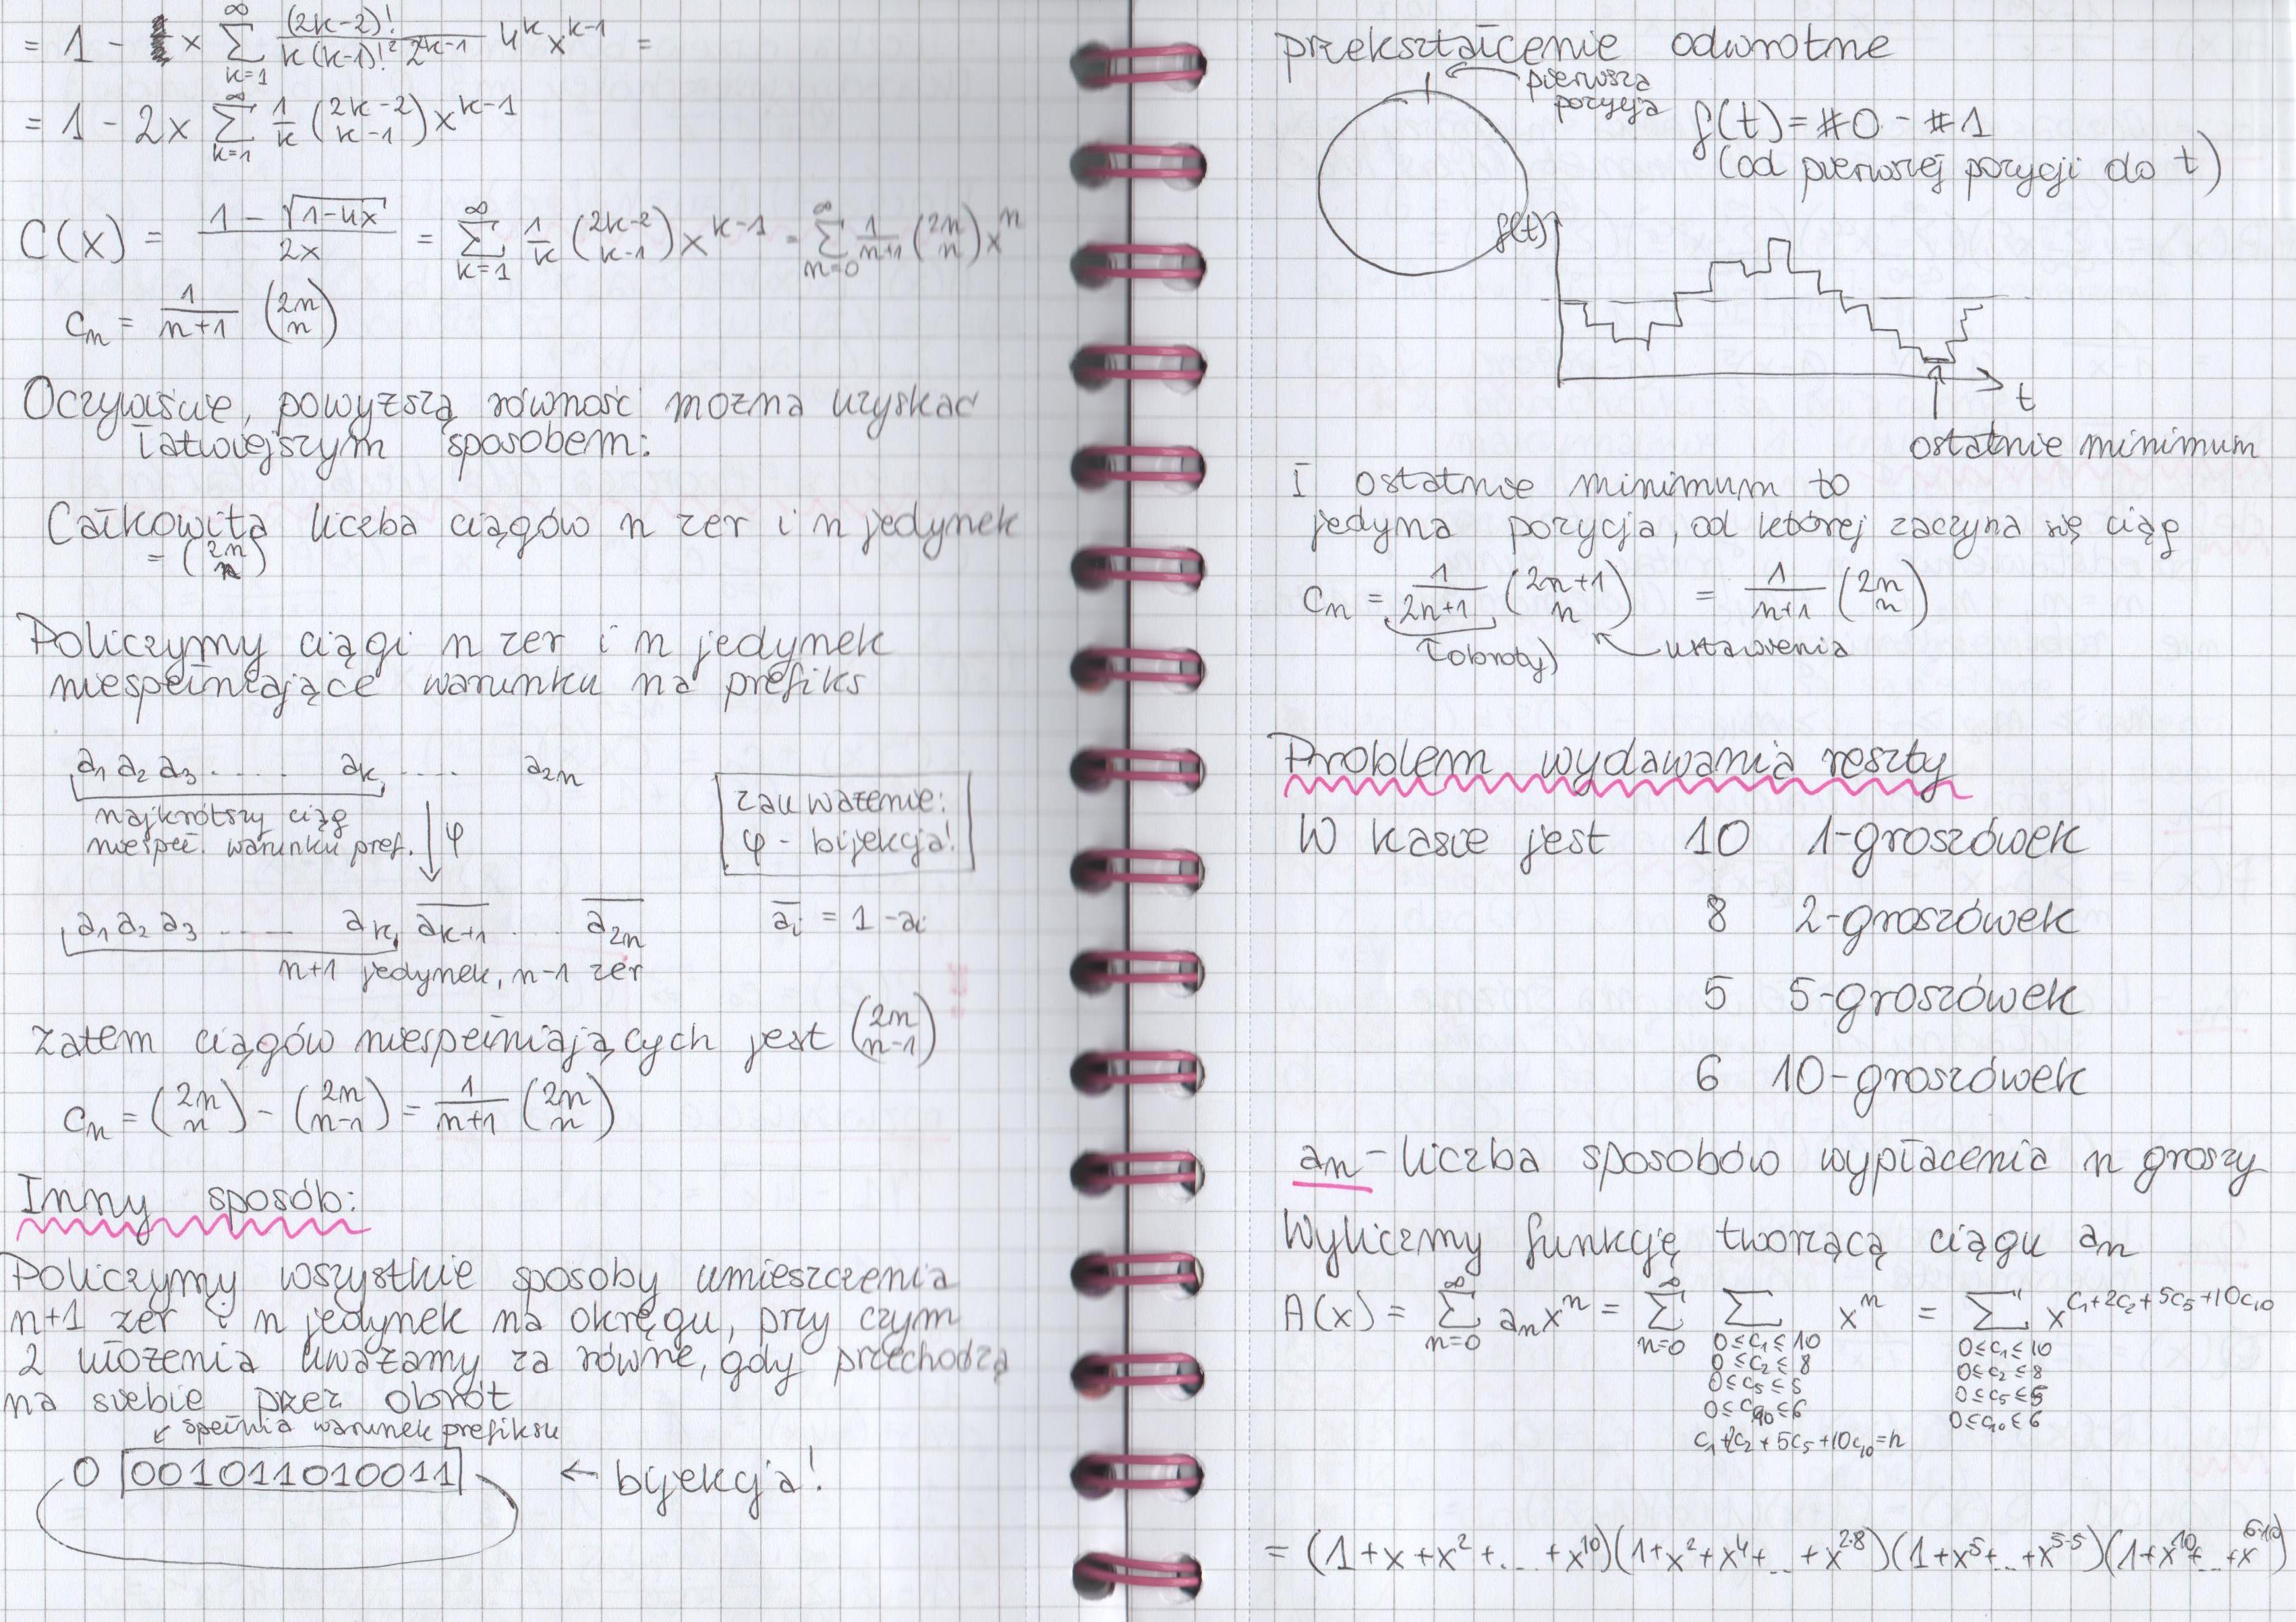 = 1 - x ∑_{k=1}^{∞} (2k-2)! / (k(k-1)!² 2^{2k-1}) 4^k x^{k-1} =
= 1 - 2x ∑_{k=1}^{∞} 1/k (2k-2 \choose k-1) x^{k-1}
C(x) = (1 - √(1-4x)) / 2x = ∑_{k=1}^{∞} 1/k (2k-2 \choose k-1) x^{k-1} = ∑_{n=0}^{∞} 1/(n+1) (2n \choose n) x^n
c_n = 1/(n+1) (2n \choose n)
Oczywiście, powyższą równość można uzyskać
łatwiejszym sposobem:
Całkowita liczba ciągów n zer i n jedynek
= (2n \choose n)
Policzymy ciągi n zer i n jedynek
niespełniające warunku na prefiks
a₁ a₂ a₃ ..... a_k .... a_{2n}
najkrótszy ciąg
niespeł. warunku pref.
φ
zauważenie:
φ - bijekcja!
a₁ a₂ a₃ ..... a_k \overline{a_{k+1}} ... \overline{a_{2n}}
\overline{a_i} = 1 - a_i
n+1 jedynek, n-1 zer
Zatem ciągów niespełniających jest (2n \choose n-1)
c_n = (2n \choose n) - (2n \choose n-1) = 1/(n+1) (2n \choose n)
Inny sposób:
Policzymy wszystkie sposoby umieszczenia
n+1 zer i n jedynek na okręgu, przy czym
2 ułożenia uważamy za równe, gdy przechodzą
na siebie przez obrót
↙ spełnia warunek prefiksu
0 001011010011 ← bijekcja!
przekształcenie odwrotne
pierwsza
pozycja
f(t) = #0 - #1
(od pierwszej pozycji do t)
f(t)
t
ostatnie minimum
I ostatnie minimum to
jedyna pozycja, od której zaczyna się ciąg
c_n = 1/(2n+1) (2n+1 \choose n) = 1/(n+1) (2n \choose n)
(obroty)
ustawienia
Problem wydawania reszty
W kasie jest 10 1-groszówek
8 2-groszówek
5 5-groszówek
6 10-groszówek
a_n - liczba sposobów wypłacenia n groszy
Wyliczmy funkcję tworzącą ciągu a_n
A(x) = ∑_{n=0}^{∞} a_n x^n = ∑_{n=0}^{∞} ∑ x^n = ∑ x^{c₁+2c₂+5c₅+10c₁₀}
0≤c₁≤10 0≤c₁≤10
0≤c₂≤8 0≤c₂≤8
0≤c₅≤5 0≤c₅≤5
0≤c₁₀≤6 0≤c₁₀≤6
c₁+2c₂+5c₅+10c₁₀=n
= (1+x+x²+...+x^{10})(1+x²+x⁴+...+x^{2·8})(1+x⁵+...+x^{5·5})(1+x^{10}+...+x^{6·10})